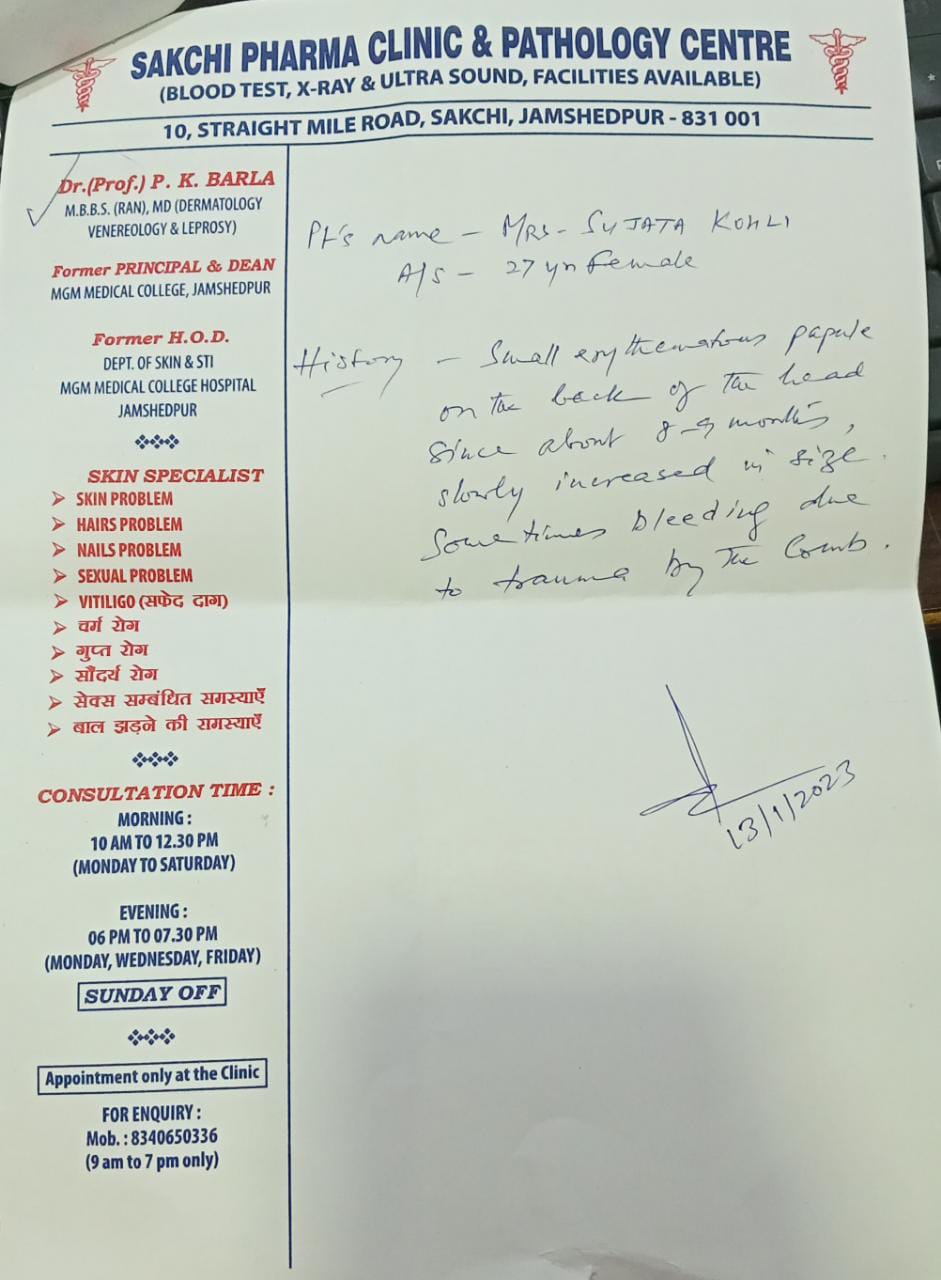 SAKCHI PHARMA CLINIC & PATHOLOGY CENTRE
(BLOOD TEST, X-RAY & ULTRA SOUND, FACILITIES AVAILABLE)
10, STRAIGHT MILE ROAD, SAKCHI, JAMSHEDPUR - 831 001
Dr.(Prof.) P. K. BARLA
M.B.B.S. (RAN), MD (DERMATOLOGY
VENEREOLOGY & LEPROSY)
Former PRINCIPAL & DEAN
MGM MEDICAL COLLEGE, JAMSHEDPUR
Former H.O.D.
DEPT. OF SKIN & STI
MGM MEDICAL COLLEGE HOSPITAL
JAMSHEDPUR
SKIN SPECIALIST
SKIN PROBLEM
HAIRS PROBLEM
NAILS PROBLEM
SEXUAL PROBLEM
VITILIGO (सफेद दाग)
चर्म रोग
गुप्त रोग
सौंदर्य रोग
सेक्स सम्बंधित समस्याएँ
बाल झड़ने की समस्याएँ
CONSULTATION TIME :
MORNING :
10 AM TO 12.30 PM
(MONDAY TO SATURDAY)
EVENING :
06 PM TO 07.30 PM
(MONDAY, WEDNESDAY, FRIDAY)
SUNDAY OFF
Appointment only at the Clinic
FOR ENQUIRY :
Mob. : 8340650336
(9 am to 7 pm only)
Pt's name - MRS- SUJATA KOHLI
A/S - 27 yr Female
History - Small erythematous papule
on the back of the head
since about 8-9 months,
slowly increased in size.
Sometimes bleeding due
to trauma by the Comb.
13/1/2023